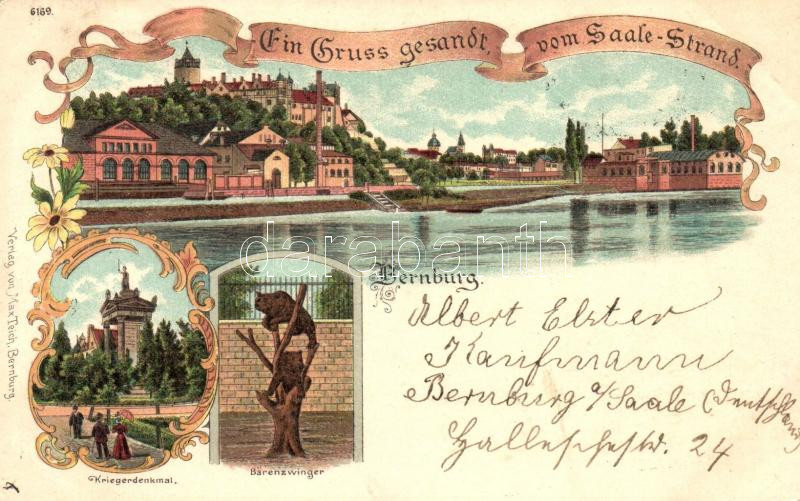 6169.
Ein Gruss gesandt, vom Saale-Strand.
darabanth
Bernburg.
Albert Elster
Kaufmann
Bernburg a/Saale (Deutschland
Halleschestr. 24
Verlag von Max Teich, Bernburg.
Kriegerdenkmal.
Bärenzwinger